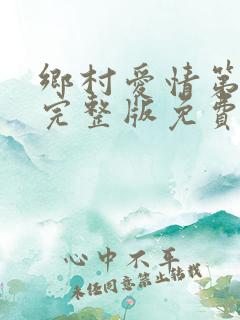 鄉村愛情第
完整版免費
心中不平
未经同意禁止转载